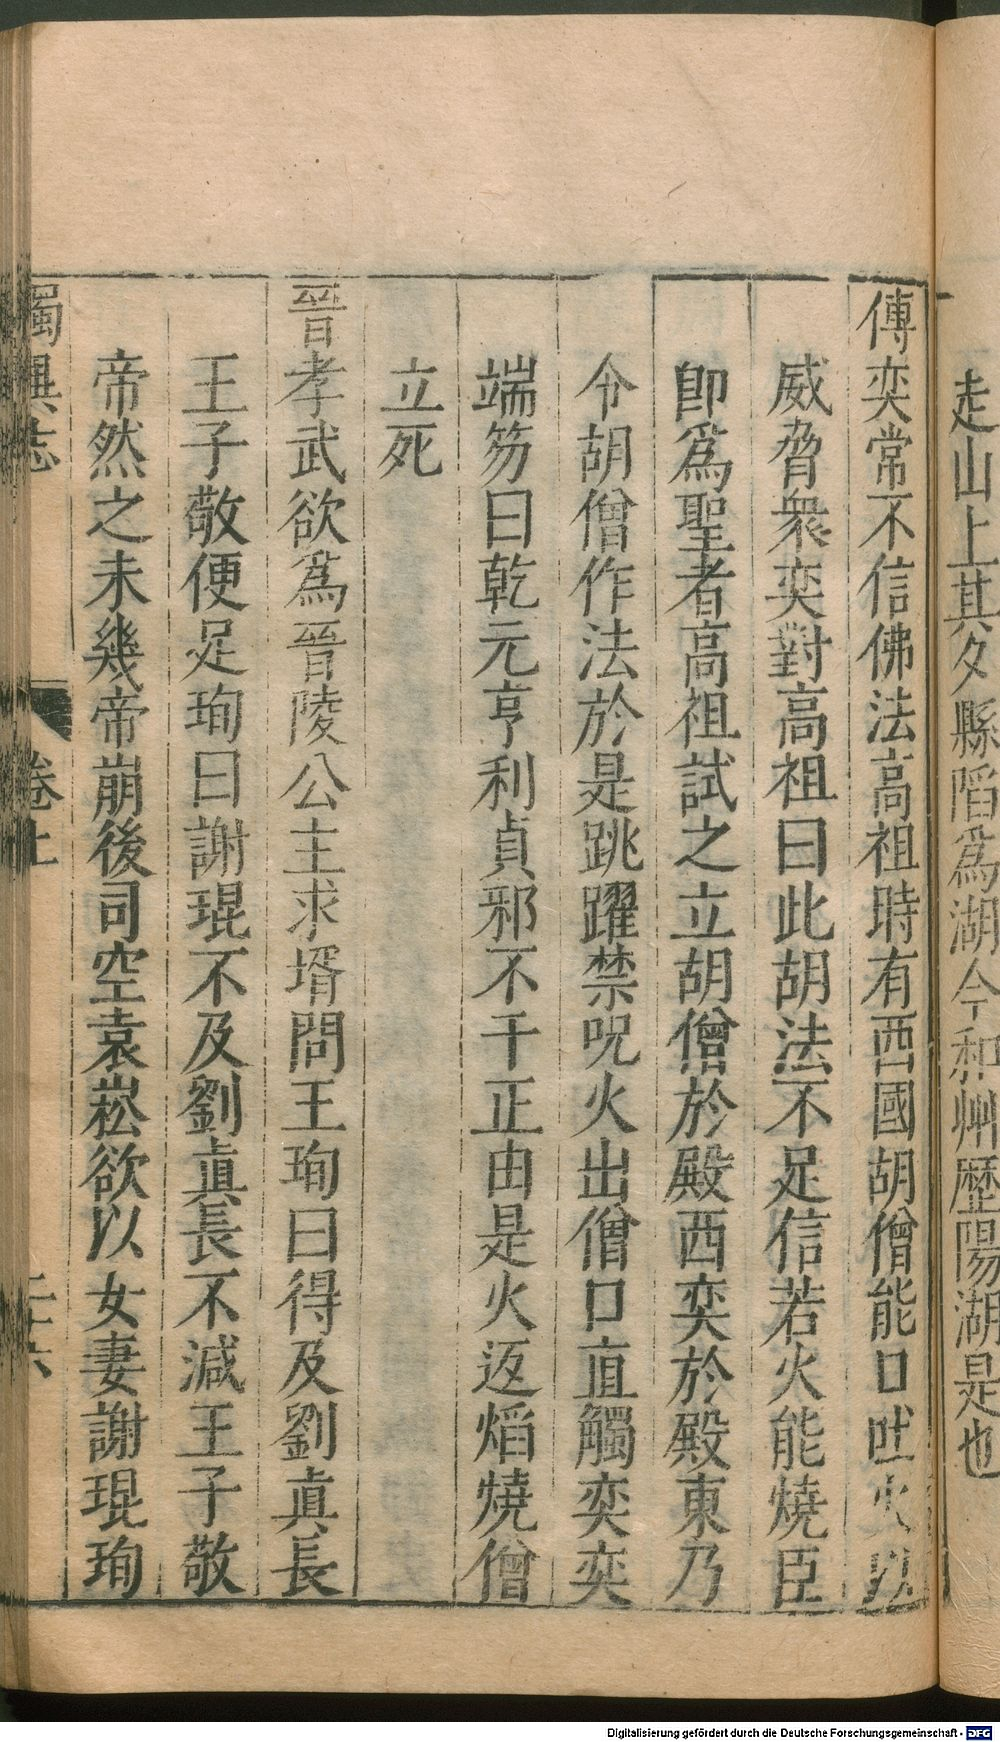 走山上其夕縣陷爲湖今和州歷陽湖是也
傅奕常不信佛法高祖時有西國胡僧能口吐火以
威脅衆奕對高祖曰此胡法不足信若火能燒臣
卽爲聖者高祖試之立胡僧於殿西奕於殿東乃
令胡僧作法於是跳躍禁呪火出僧口直觸奕奕
端笏曰乾元亨利貞邪不干正由是火返熖燒僧
立死
晉孝武欲爲晉陵公主求壻問王珣曰得及劉眞長
王子敬便足珣曰謝琨不及劉眞長不減王子敬
帝然之未幾帝崩後司空袁崧欲以女妻謝琨珣
獨異志
卷上
二十六
Digitalisierung gefördert durch die Deutsche Forschungsgemeinschaft - DFG